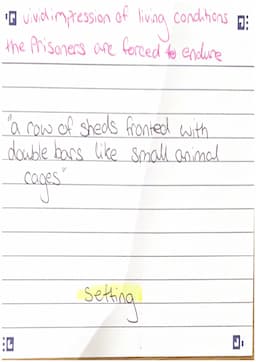 vivid impression of living conditions
the Prisoners are forced to endure
"a row of sheds fronted with
double bars like small animal
cages"
setting